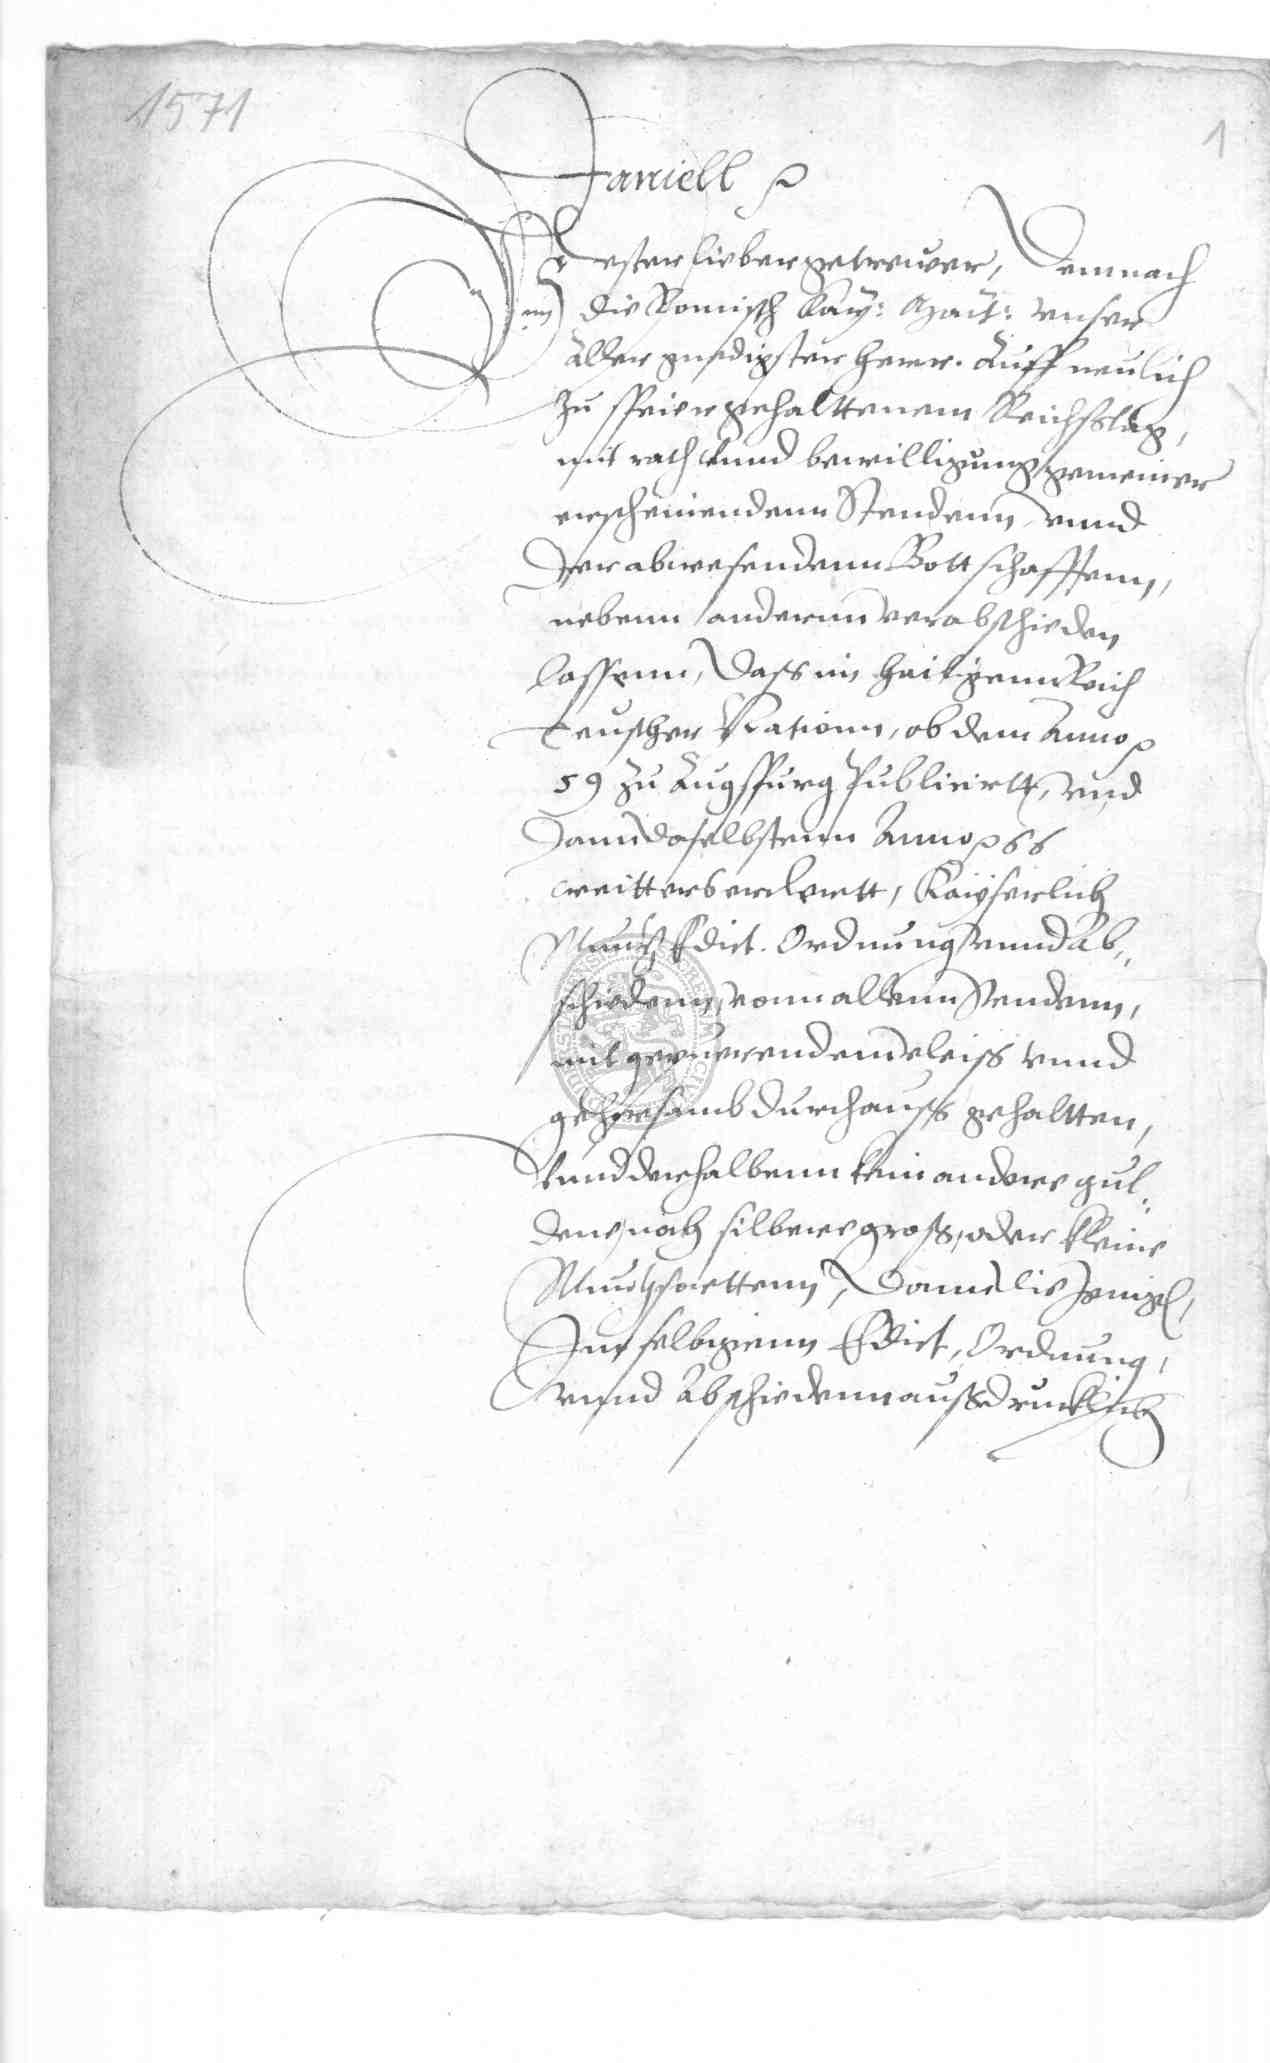 1571
1
Daniell p
Vester lieber getrewer, Demnach
die Romisch Kay: Mait: vnser
Aller gnedigster Herr. Auff neulich
zu Speier gehalttenem Reichsstag,
mit rath vnnd bewilligung gemeiner
erscheinendenn Stendenn, vnnd
der abwesendenn Bottschafftenn,
nebenn anderm verabschieden
lassenn, Dass im Heiligenn Reich
Teutscher Nationn, ob dem Anno p
59 zu Augspurg Publicirtt, vnd
dann daselbstenn Anno p 66
weitters erclertt, Kayserlich
Muntz Edict. Ordnung vnnd Ab„
schiedenn, vonn allenn Stendenn,
mit gepuerendem vleiss vnnd
gehorsamb durchauss gehaltten,
Vnnd derhalbenn kein andere gul„
dene, noch silbere gross, oder kleine
Muntzsorttenn, Dann die Jenige,
Inn selbigenn Edict, Ordnung,
vnnd Abschiedenn aussdrucklich